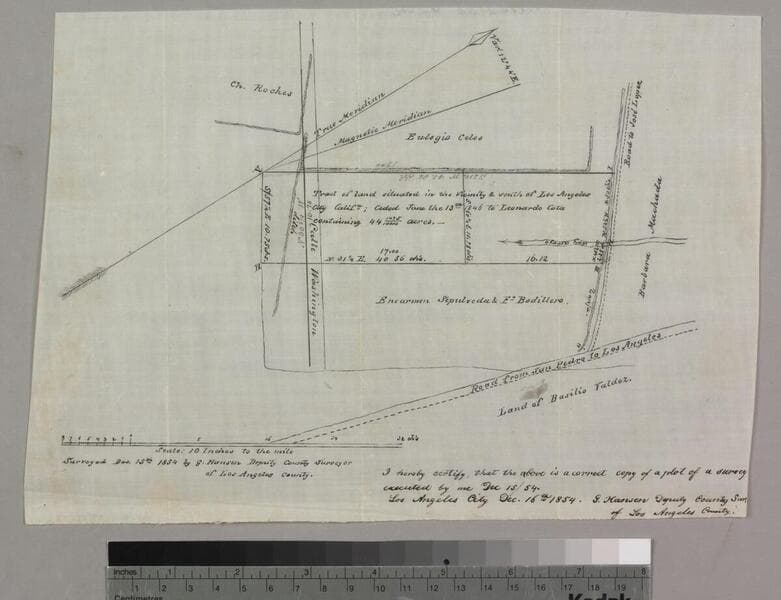 Ch. Roches
True Meridian
Magnetic Meridian
Var. 12° 44' E.
Eulogio Celes
Road to José Lopez
A
Tract of land situated in the vicinity & south of Los Angeles
City Califª; Ceded June the 13th 46 to Leonardo Cota
containing 44 acres.—
17.00
N. 31¼ E. 40 56 chs.
16.12
B
Washington
Barbara Machada
Encarnon Sepulveda & Fº Bodillero.
Road from San Pedro to Los Angeles
Land of Basilio Valdez.
Scale: 10 Inches to the mile
Surveyed Dec. 15th 1854 by G. Hansen Deputy County Surveyor
of Los Angeles County.
I hereby certify, that the above is a correct copy of a plot of a survey
executed by me Dec 15/54.
Los Angeles City Dec. 16th 1854. G. Hansen Deputy County Sur,
of Los Angeles County.
Inches 1 2 3 4 5 6 7 8
1 2 3 4 5 6 7 8 9 10 11 12 13 14 15 16 17 18 19
Centimetres
Kodak